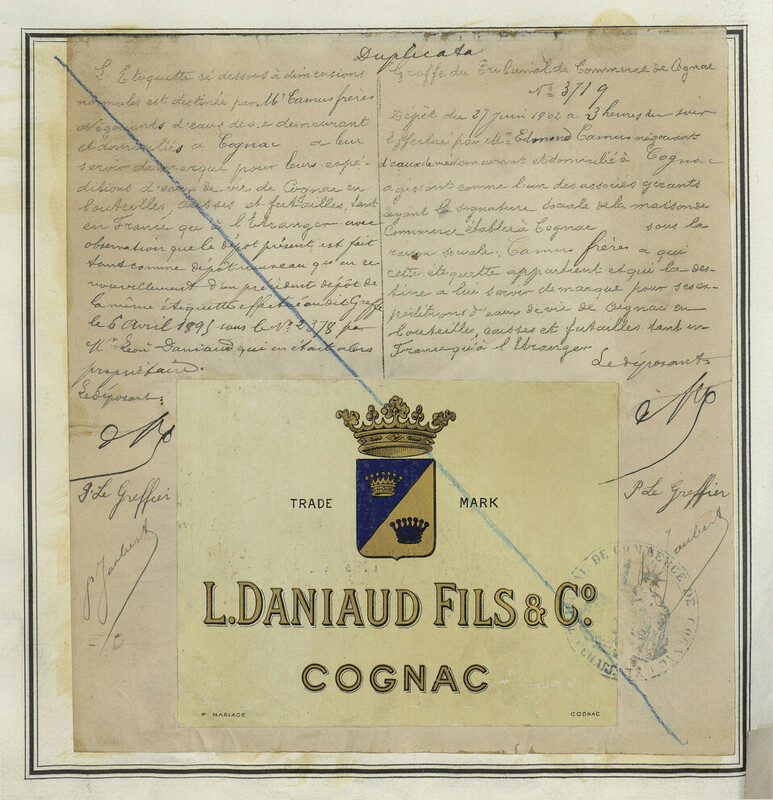 Duplicata
L'Etiquette ci dessous à dimensions
normales est destinée par Mrs Camus frères
négociants d'eaux de vie demeurant
et domiciliés à Cognac à leur
servir de marque pour leurs expé-
ditions d'eaux de vie de Cognac en
bouteilles, caisses et futailles, tant
en France qu'à l'Etranger avec
observation que le dépôt présent est fait
tant comme dépôt nouveau qu'en re-
nouvellement d'un précédent dépôt de
la même étiquette effectué au dit Greffe
le 6 Avril 1895 sous le No 2378 par
Mr Léon Daniaud qui en était alors
propriétaire.
Le déposant
P. Le Greffier
Greffe du Tribunal de Commerce de Cognac
No 3719
Dépôt du 27 Juin 1902 à 3 heures du soir
Effectué par Mr Edmond Camus négociant
d'eaux de vie demeurant et domicilié à Cognac
agissant comme l'un des associés gérants
ayant la signature sociale de la maison de
Commerce établie à Cognac sous la
raison sociale: Camus frères à qui
cette étiquette appartient et qui la des-
tine à lui servir de marque pour ses ex-
péditions d'eaux de vie de Cognac en
bouteilles, caisses et futailles tant en
France qu'à l'Etranger
Le déposant
P. Le Greffier
TRADE MARK
L. DANIAUD FILS & Co.
COGNAC
P. MARIAGE
COGNAC
DE COMMERCE DE COGNAC